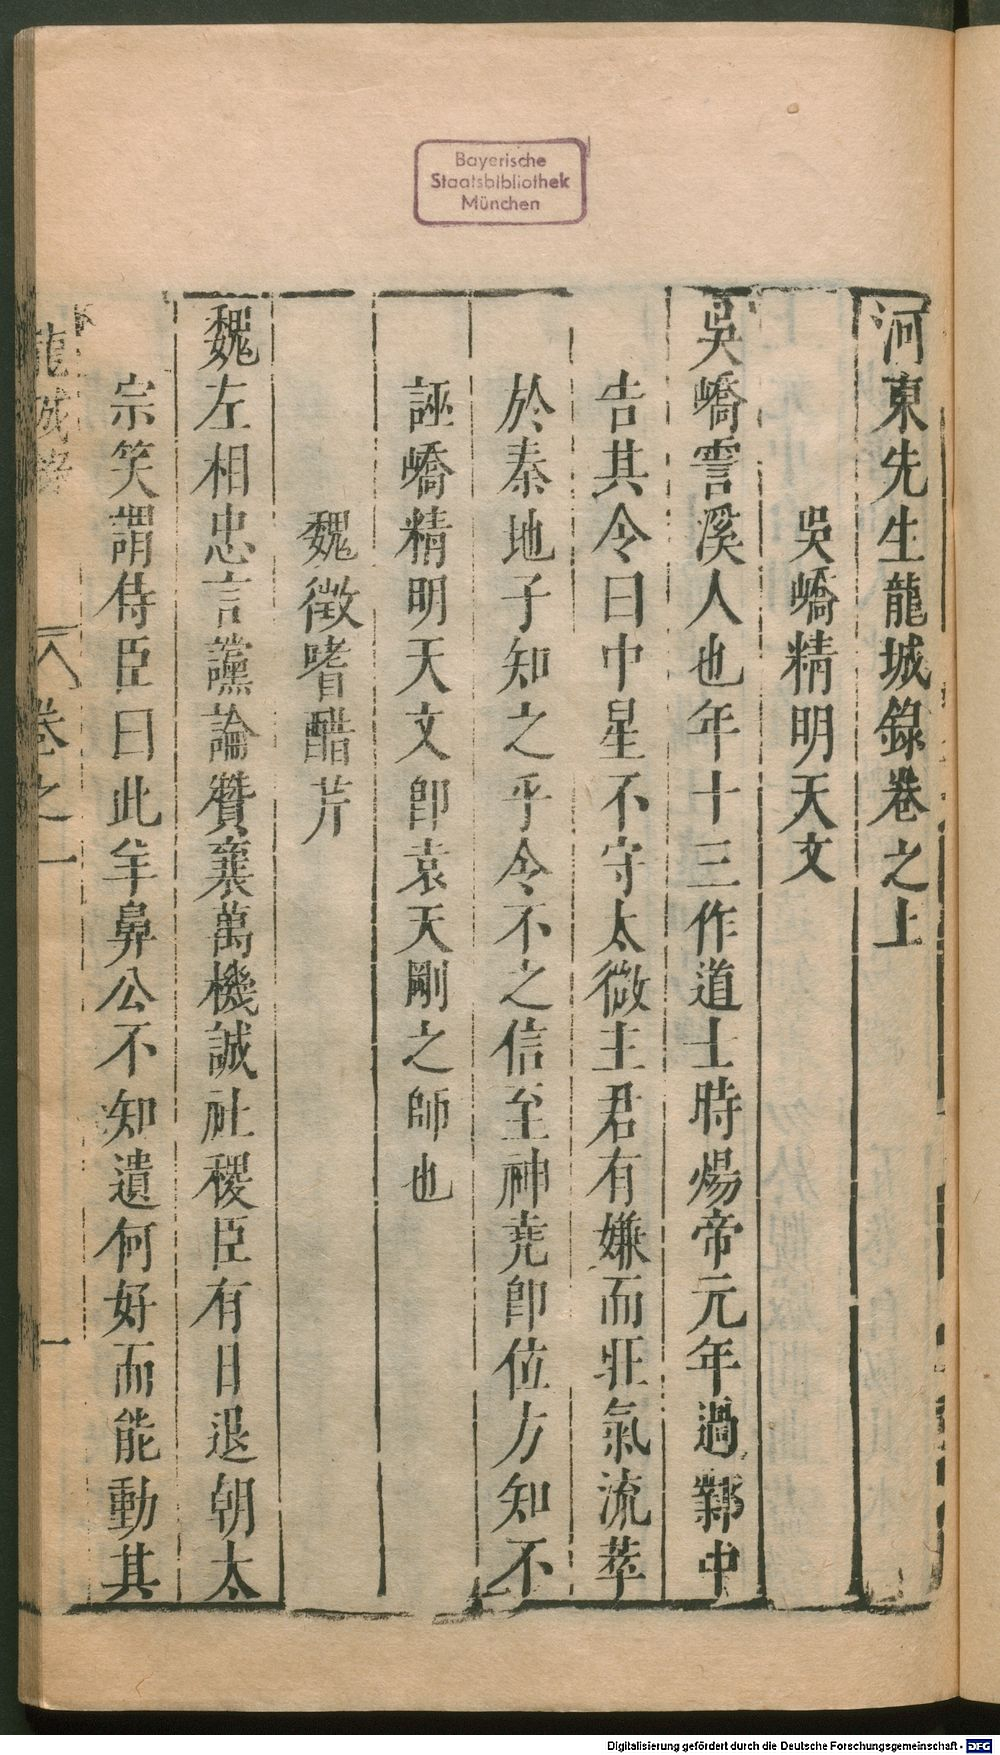 Bayerische
Staatsbibliothek
München
河東先生龍城錄卷之上
吳嶠精明天文
吳嶠霅溪人也年十三作道士時煬帝元年過鄴中
告其令曰中星不守太微主君有嫌而旺氣流萃
於秦地子知之乎令不之信至神堯卽位方知不
誣嶠精明天文卽袁天剛之師也
魏徵嗜醋芹
魏左相忠言讜論贊襄萬機誠社稷臣有日退朝太
宗笑謂侍臣曰此羊鼻公不知遺何好而能動其
龍城錄 卷之一 一
Digitalisierung gefördert durch die Deutsche Forschungsgemeinschaft - DFG